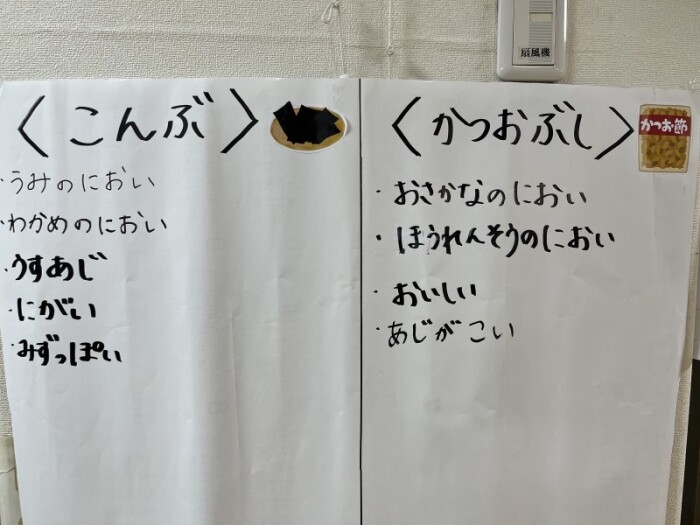 扇風機
〈こんぶ〉
・うみのにおい
・わかめのにおい
・うすあじ
・にがい
・みずっぽい
〈かつおぶし〉
かつお節
・おさかなのにおい
・ほうれんそうのにおい
・おいしい
・あじがこい